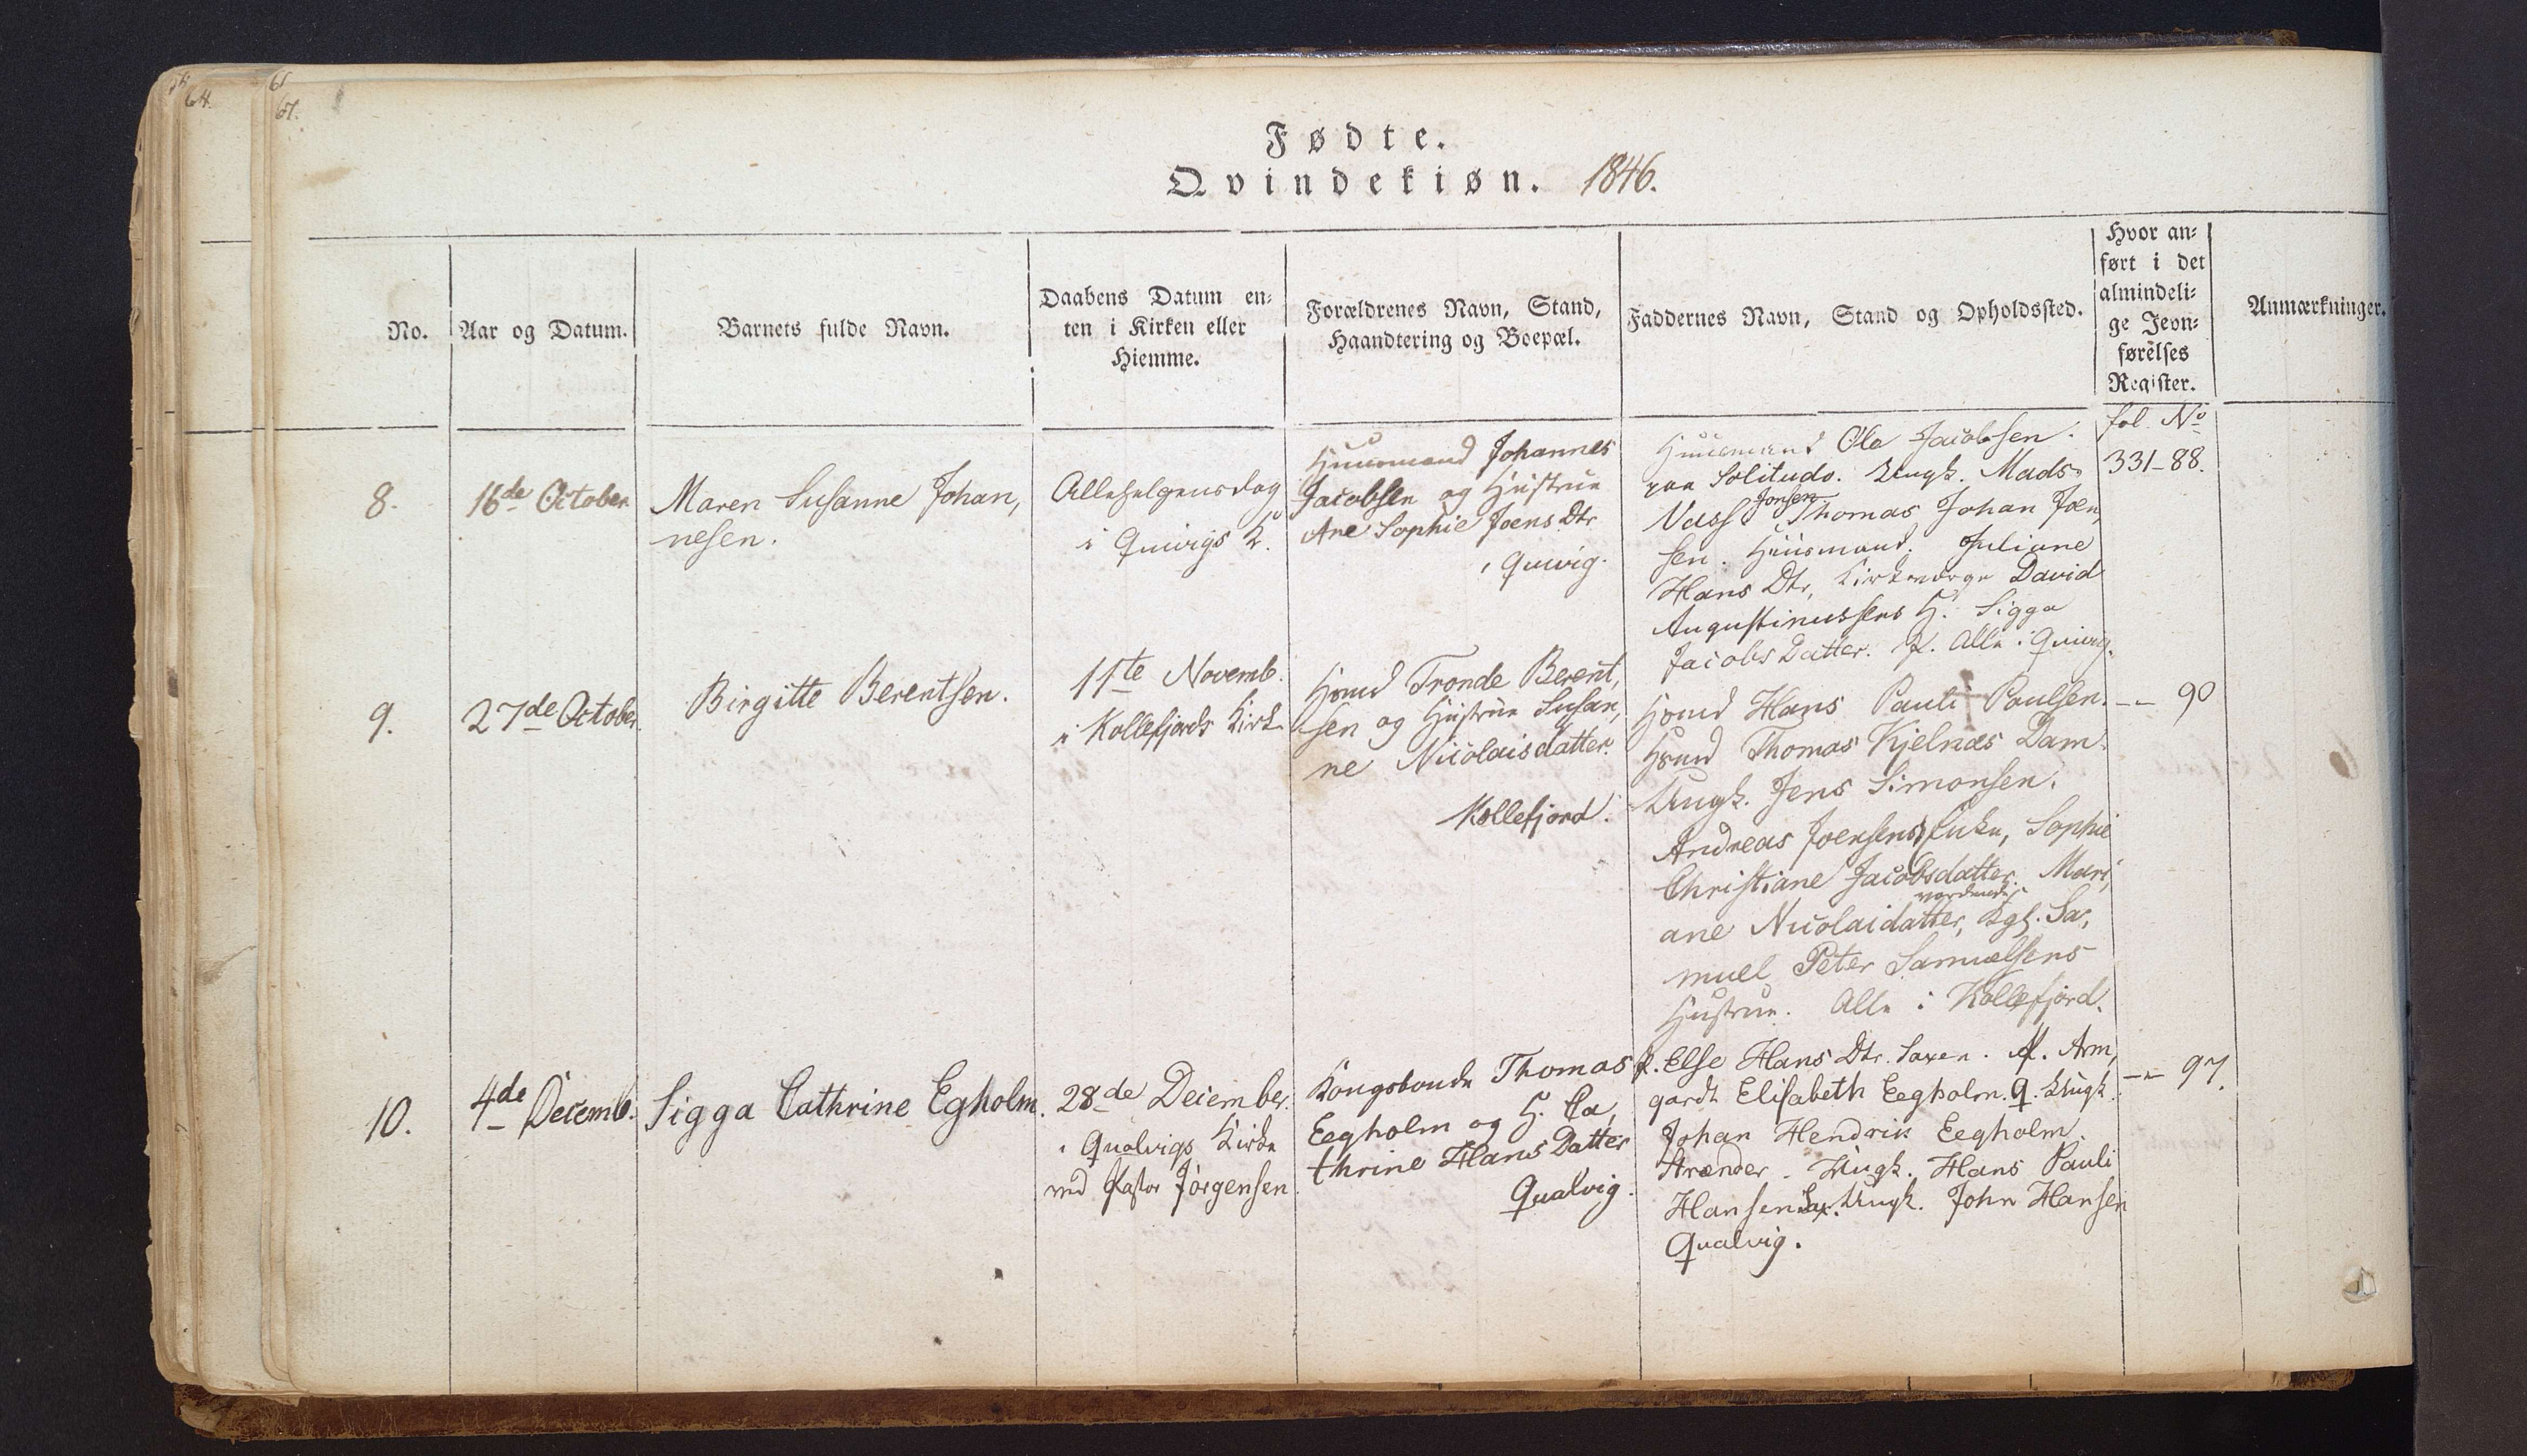 64.
61
67.
Fødte.
Qvindekiøn. 1846.
No.
Aar og Datum.
Barnets fulde Navn.
Daabens Datum en-
ten i Kirken eller
Hiemme.
Forældrenes Navn, Stand,
Haandtering og Boepæl.
Faddernes Navn, Stand og Opholdssted.
Hvor an-
ført i det
almindeli-
ge Jevn-
førelses
Register.
Anmærkninger.
8.
16de October
Maren Susanne Johan,
nesen.
Allehelgensdag
i Quivigs K.
Huusmand Johannes
Jacobsen og Hustrue
Ane Sophie Joens Dtr
i Quivig.
Huusmand Ole Jacobsen.
paa Solitudo. Ungk. Mads
Jonsen
Vass Thomas Johan Joen,
sen. Huusmand. Juliane
Hans Dtr, Kirkeværge David
Augustinussens H. Sigga
Jacobs Datter. P. Alle i Quivig.
fol. No
331-88.
9.
27de October.
Birgitte Berentsen.
11te Novemb.
i Kollefjords Kirke
Hsmd Tronde Berent,
sen og Hustrue Susan,
ne Nicolaisdatter.
Kollefjord.
Hsmd Hans Pauli Poulsen.
Hsmd Thomas Kjelnæs Dam.
Ungk. Jens Simonsen.
Andreas Joensens Enke, Sophie
Christiane Jacobsdatter. Mari,
ane Nicolaidatter, Ugk. Sa,
muel Peter Samuelsens
Hustrue. Alle i Kollefjord.
-- 90
10.
4de Decemb.
Sigga Cathrine Egholm.
28de December.
i Qualvigs Kirke
ved Pastor Jørgensen
Kongsbonde Thomas
Eegholm og H. Ca,
thrine Hans Datter
Qualvig.
P. Else Hans Dtr. Saxen. P. Arm,
gardt Elisabeth Eegholm. Q. Ungk.
Johan Hendrik Eegholm.
Strænder. Ungk. Hans Pauli
Hansen Sax. Ungk. John Hansen
Qualvig.
-- 97.